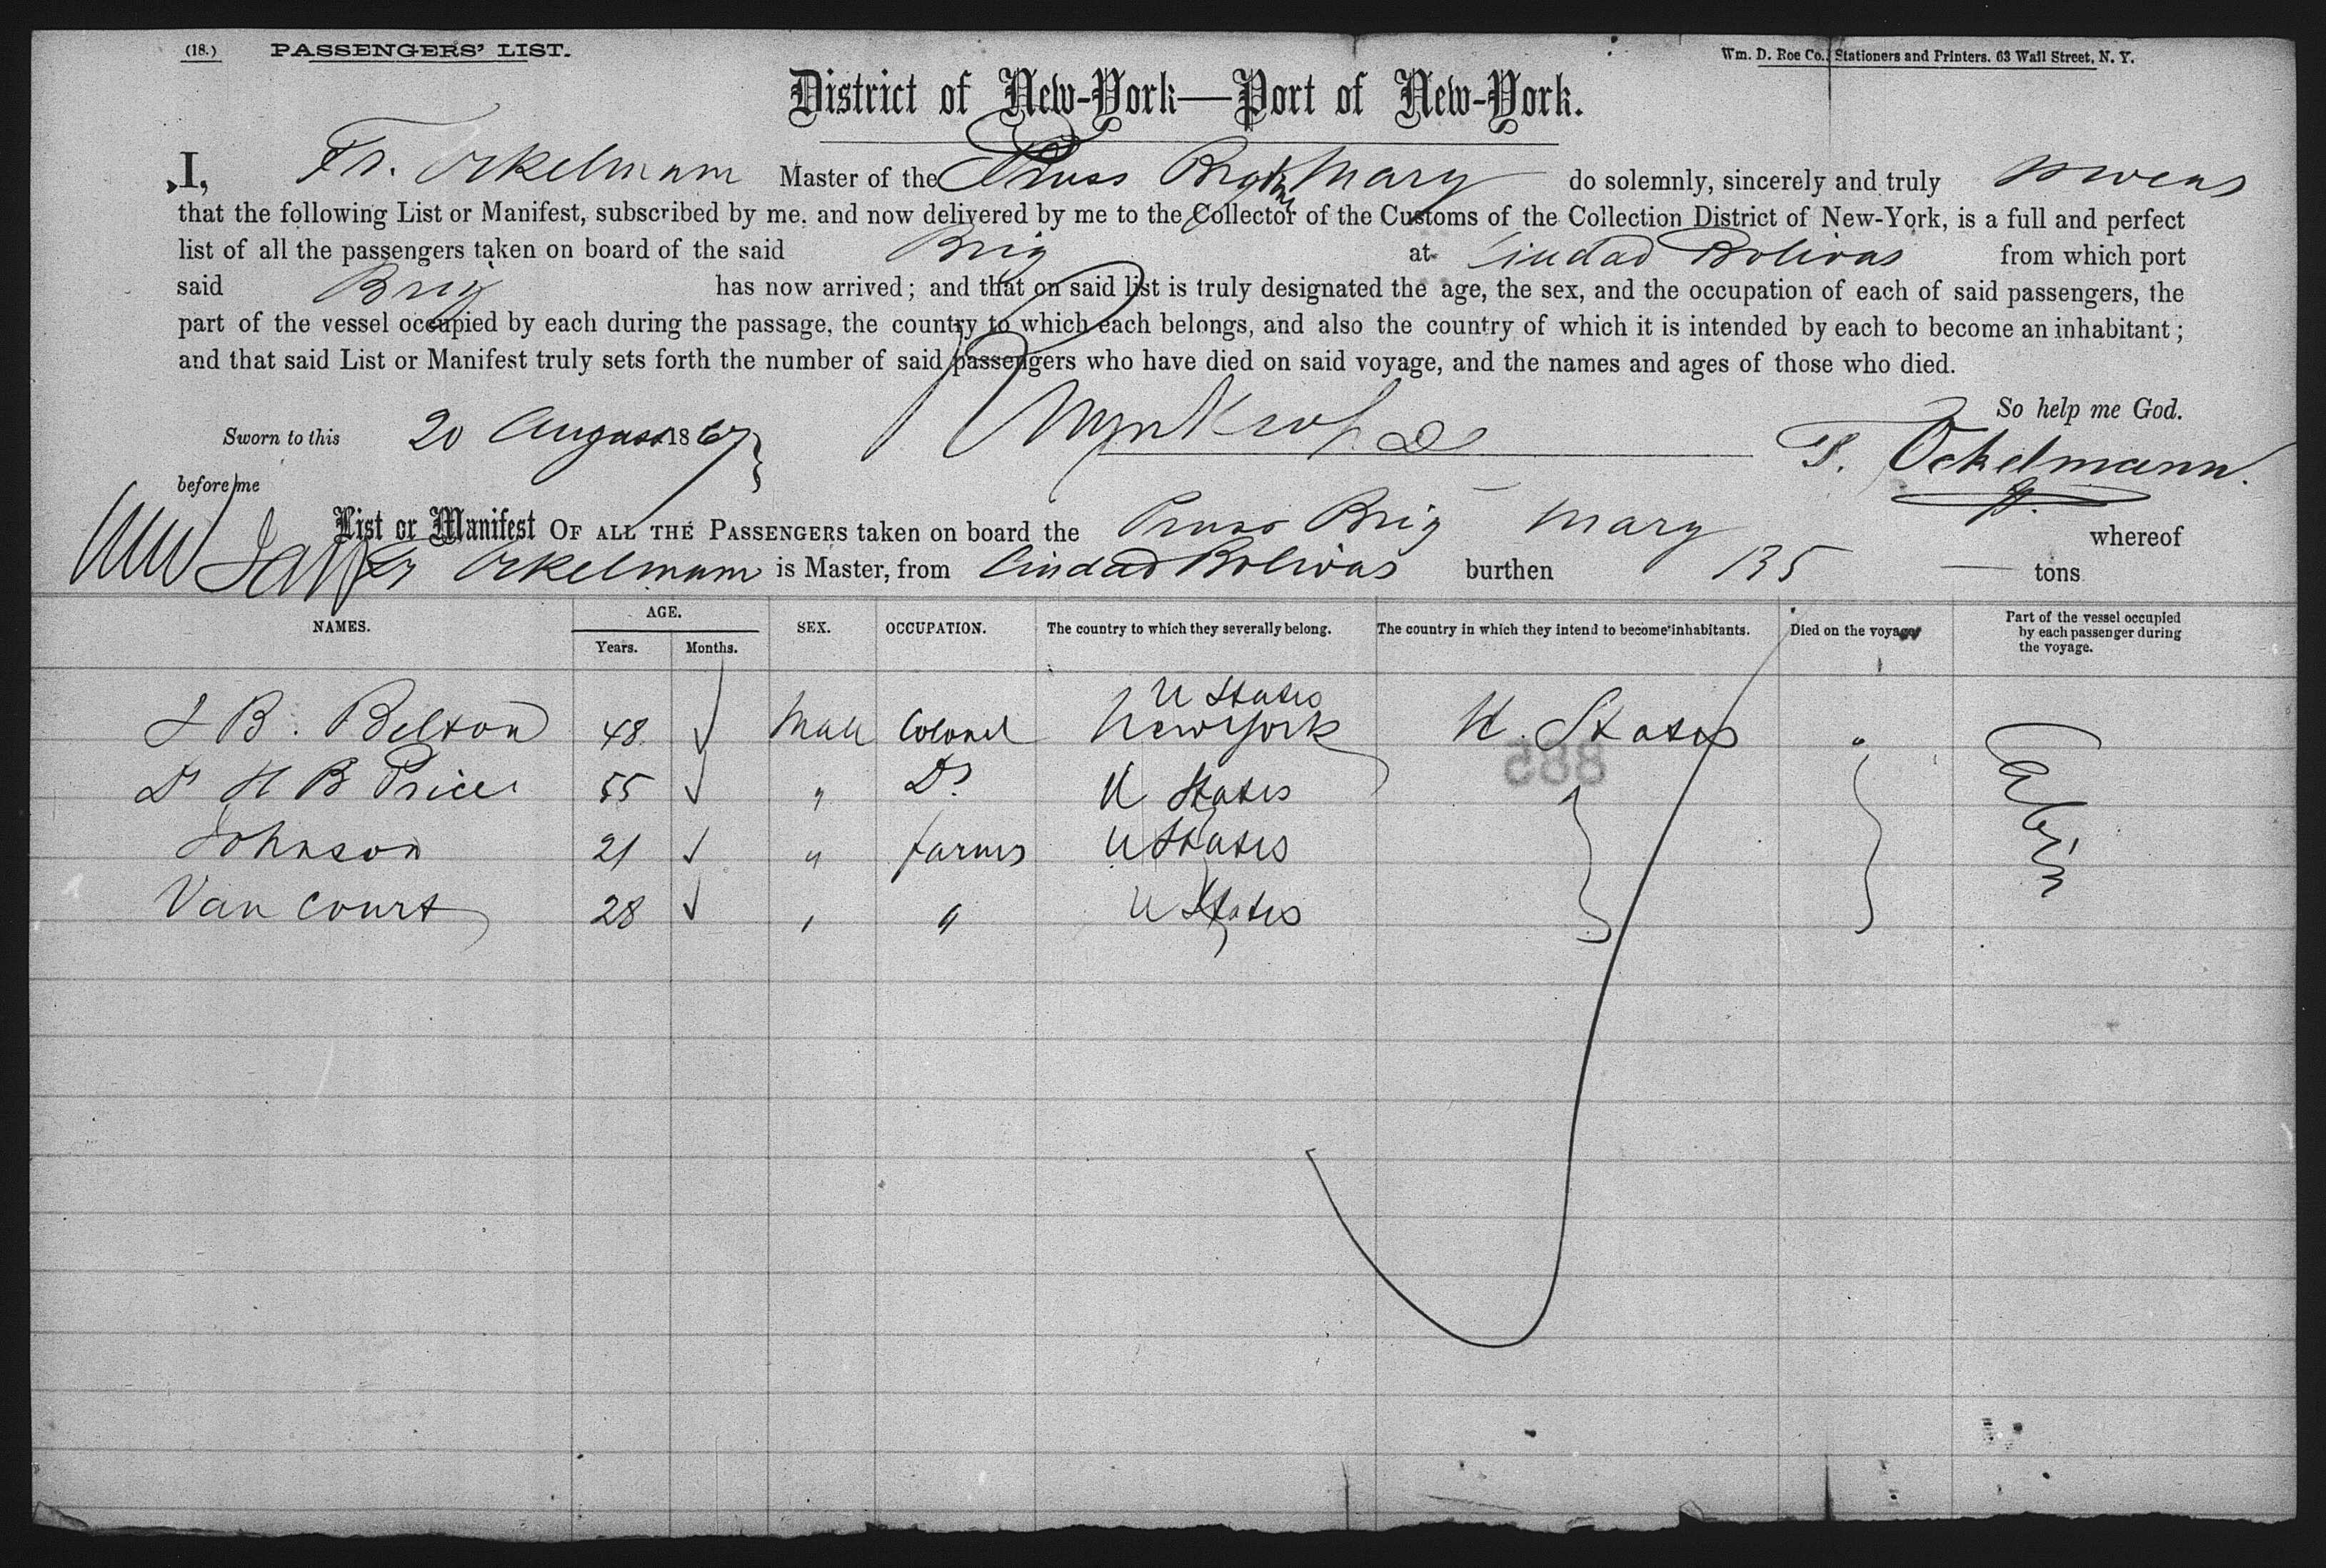 (18.) PASSENGERS' LIST. Wm. D. Roe Co., Stationers and Printers. 63 Wall Street, N. Y.
District of New-York—Port of New-York.
I, Fr. Ockelmann Master of the Pruss Brig Mary do solemnly, sincerely and truly swear
that the following List or Manifest, subscribed by me, and now delivered by me to the Collector of the Customs of the Collection District of New-York, is a full and perfect
list of all the passengers taken on board of the said Brig at Ciudad Bolivar from which port
said Brig has now arrived; and that on said list is truly designated the age, the sex, and the occupation of each of said passengers, the
part of the vessel occupied by each during the passage, the country to which each belongs, and also the country of which it is intended by each to become an inhabitant;
and that said List or Manifest truly sets forth the number of said passengers who have died on said voyage, and the names and ages of those who died.
So help me God.
Sworn to this 20 August 1867
F. Ockelmann.
before me
List or Manifest OF ALL THE PASSENGERS taken on board the Pruss Brig Mary whereof
Fr Ockelmann is Master, from Ciudad Bolivar burthen 135 tons
NAMES. AGE. Years. Months. SEX. OCCUPATION. The country to which they severally belong. The country in which they intend to become inhabitants. Died on the voyage. Part of the vessel occupied by each passenger during the voyage.
U States
J B. Belton 48 Male Colonel New York U. States " Cabin
885
Dr H B Price 55 " Dr. U States
Johnson 21 " farmer U States
Van Court 28 " " U States